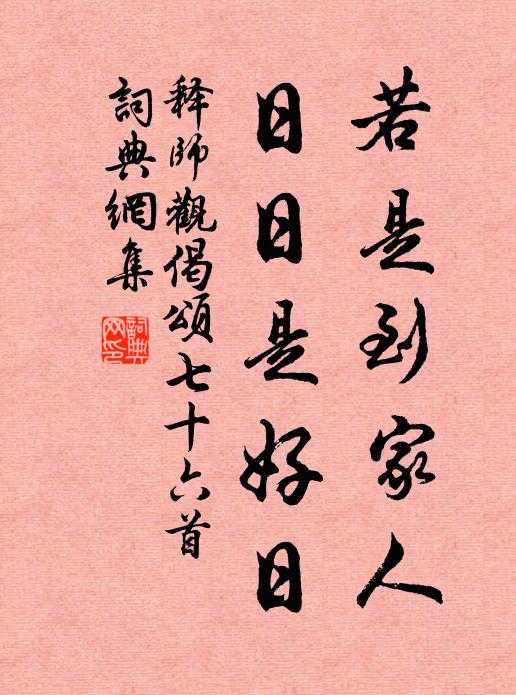 若是到家人
日日是好日
释師觀偈頌七十六首
詞典網集
詞典
网印